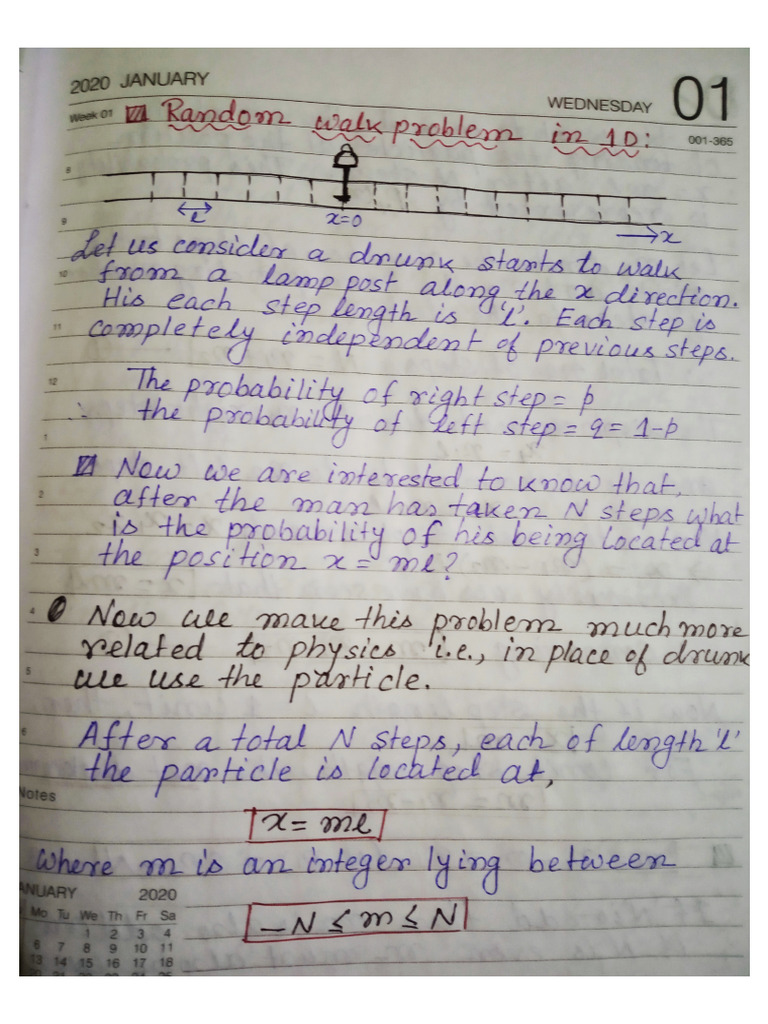 2020 JANUARY
WEDNESDAY 01
Week 01
001-365
Random walk problem in 1D:
8
l
x=0
x
9
Let us consider a drunk starts to walk
10 from a lamp post along the x direction.
His each step length is 'l'. Each step is
11 completely independent of previous steps.
12 The probability of right step = p
∴ the probability of left step = q = 1-p
1
Now we are interested to know that,
2 after the man has taken N steps what
is the probability of his being located at
3 the position x = ml?
4 Now we make this problem much more
related to physics i.e., in place of drunk
5 we use the particle.
6 After a total N steps, each of length 'l'
the particle is located at,
Notes
x = ml
where m is an integer lying between
ANUARY 2020
Mo Tu We Th Fr Sa
1 2 3 4
6 7 8 9 10 11
13 14 15 16 17 18
-N ≤ m ≤ N